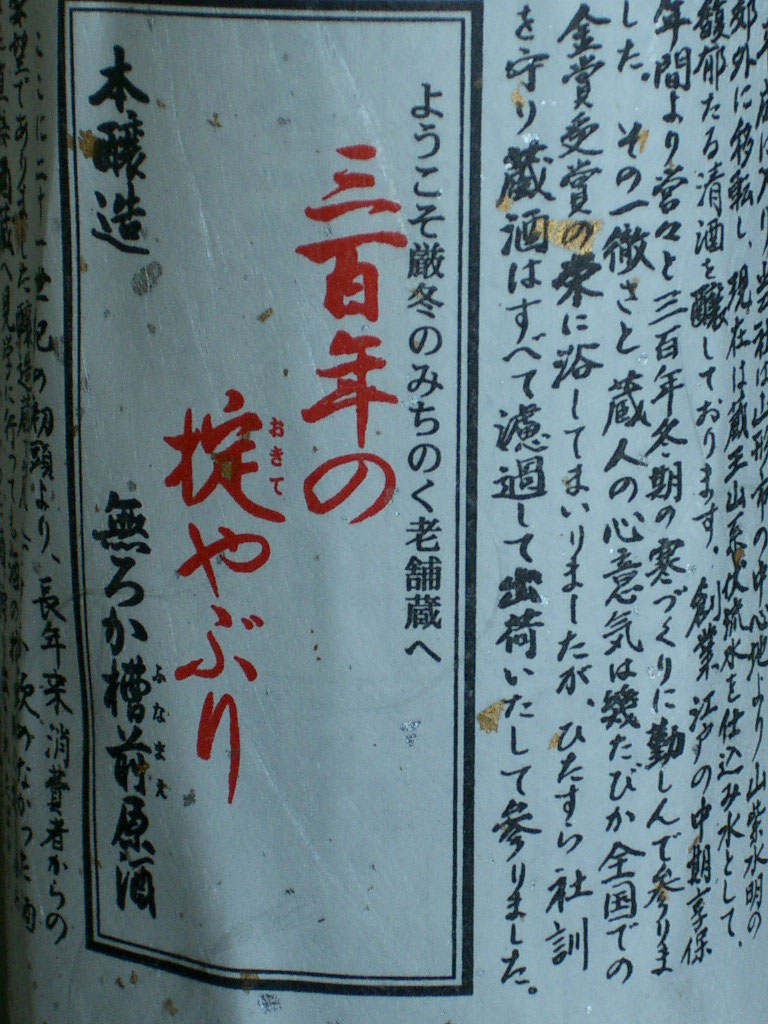 郊外に移転し、現在は蔵王山系伏流水を仕込み水として、
馥郁たる清酒を醸しております。創業江戸の中期享保
年間より営々と三百年冬期の寒づくりに勤しんで参りま
した。その一徹さと蔵人の心意気は幾たびか全国での
金賞受賞の栄に浴してまいりましたが、ひたすら社訓
を守り蔵酒はすべて濾過して出荷いたして参りました。
ようこそ厳冬のみちのく老舗蔵へ
三百年の
掟やぶり
おきて
本醸造 無ろか槽前原酒
ふなまえ
ここに二十一世紀の初頭より、長年来消費者からの